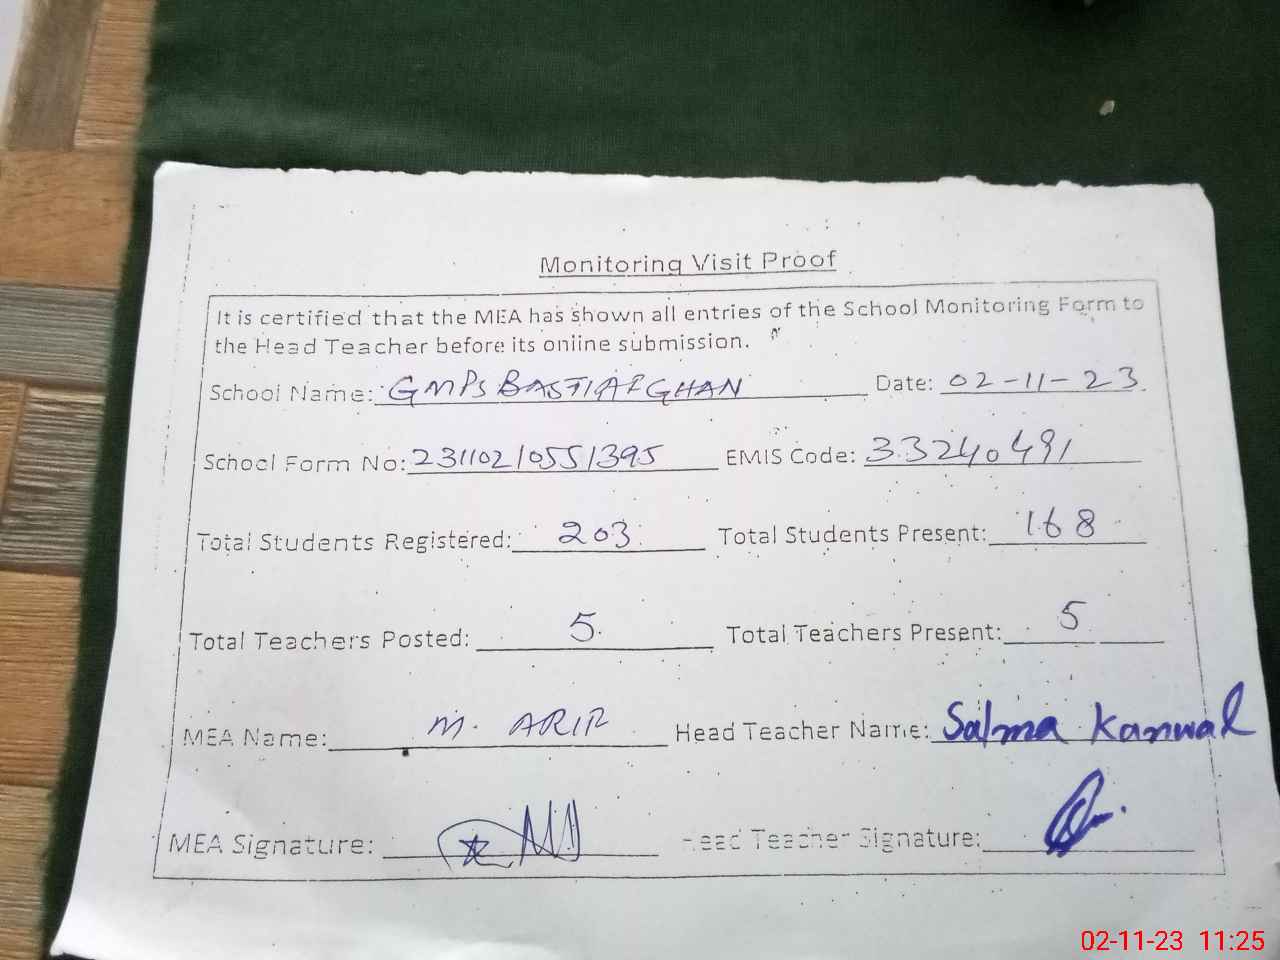 Monitoring Visit Proof
It is certified that the MEA has shown all entries of the School Monitoring Form to
the Head Teacher before its online submission.
School Name: GMPS BASTI AFGHAN Date: 02-11-23
School Form No: 23110210551395 EMIS Code: 33240491
Total Students Registered: 203 Total Students Present: 168
Total Teachers Posted: 5 Total Teachers Present: 5
MEA Name: M. ARIF Head Teacher Name: Salma Kanwal
MEA Signature: Head Teacher Signature:
02-11-23 11:25